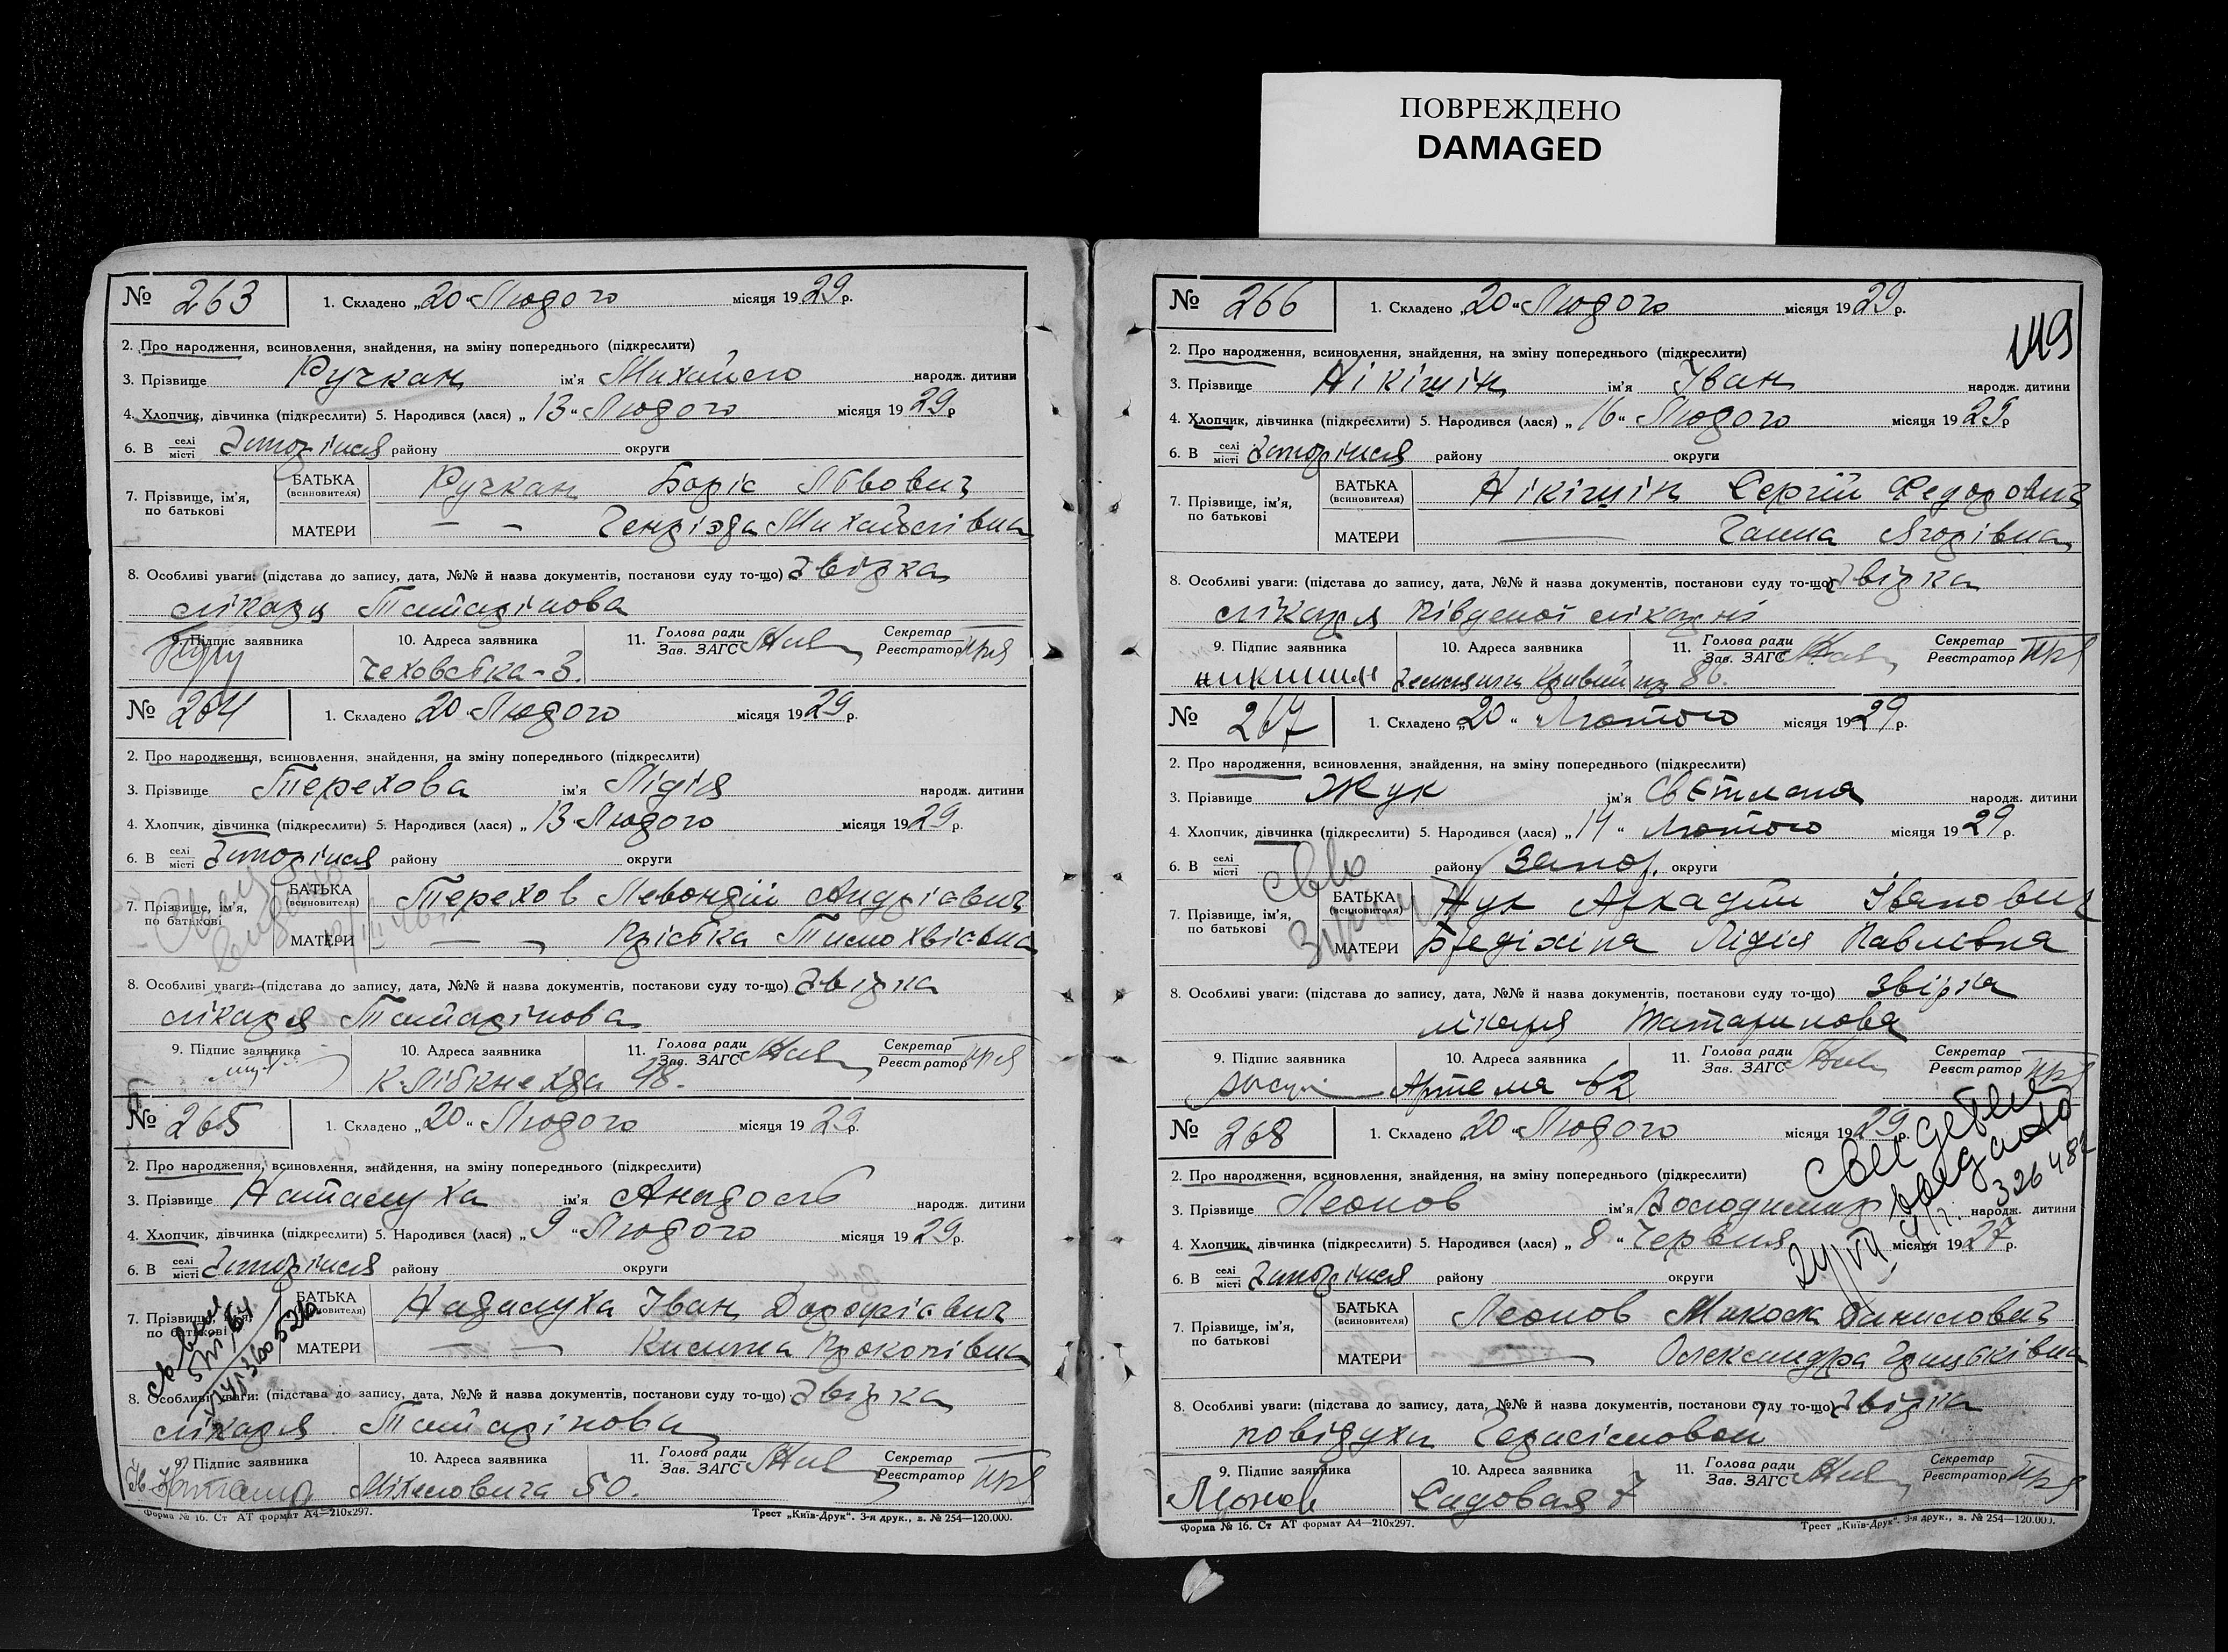 ПОВРЕЖДЕНО
DAMAGED
№ 263
1. Складено „20“ Людого місяця 1929 р.
2. Про народження, всиновлення, знайдення, на зміну попереднього (підкреслити)
3. Прізвище Ручкан ім'я Михайло народж. дитини
4. Хлопчик, дівчинка (підкреслити) 5. Народився (лася) „13“ Людого місяця 1929 р
6. В селі місті Запоріжжя району округи
7. Прізвище, ім'я, по батькові
БАТЬКА (всиновителя) Ручкан Боріс Львович
МАТЕРИ — — Михайлівна
8. Особливі уваги: (підстава до запису, дата, №№ й назва документів, постанови суду то-що) Звірка
лікаря Татарінова
9. Підпис заявника 10. Адреса заявника 11. Голова ради Зав. ЗАГС Секретар Реєстратор
Чеховська-3.
№ 264
1. Складено 20 Людого місяця 1929 р.
2. Про народження, всиновлення, знайдення, на зміну попереднього (підкреслити)
3. Прізвище Терехова ім'я Лідія народж. дитини
4. Хлопчик, дівчинка (підкреслити) 5. Народився (лася) „13 Людого місяця 1929 р.
6. В селі місті Запоріжжя району округи
7. Прізвище, ім'я, по батькові
БАТЬКА (всиновителя) Терехов Левондій Андрієвич
МАТЕРИ — — Крістка Тимохвієвна
8. Особливі уваги: (підстава до запису, дата, №№ й назва документів, постакови суду то-що) Звірка
лікаря Татарінова
9. Підпис заявника 10. Адреса заявника 11. Голова ради Зав. ЗАГС Секретар Реєстратор
К. Лібкнехда 48.
№ 265
1. Складено „20“ Людого місяця 1929 р.
2. Про народження, всиновлення, знайдення, на зміну попереднього (підкреслити)
3. Прізвище Наталуха ім'я Анадоль народж. дитини
4. Хлопчик, дівчинка (підкреслити) 5. Народився (лася) „9“ Людого місяця 1929 р.
6. В селі місті Запоріжжя району округи
7. Прізвище, ім'я, по батькові
БАТЬКА (всиновителя) Надалуха Іван Дорофієвич
МАТЕРИ — — Прокопівна
8. Особливі уваги: (підстава до запису, дата, №№ й назва документів, постанови суду то-що) Звірка
лікаря Татарінова
9. Підпис заявника 10. Адреса заявника 11. Голова ради Зав. ЗАГС Секретар Реєстратор
50.
Форма № 16. Ст АТ формат А4—210х297.
Трест „Київ-Друк“. 3-я друк., в. № 254—120.000.
149
№ 266
1. Складено „20“ Людого місяця 1929 р.
2. Про народження, всиновлення, знайдення, на зміну попереднього (підкреслити)
3. Прізвище Нікішін ім'я Іван народж. дитини
4. Хлопчик, дівчинка (підкреслити) 5. Народився (лася) „16“ Людого місяця 1929 р
6. В селі місті Запоріжжя району округи
7. Прізвище, ім'я, по батькові
БАТЬКА (всиновителя) Нікішін Сергій Федорович
МАТЕРИ — Ганна
8. Особливі уваги: (підстава до запису, дата, №№ й назва документів, постанови суду то-що) Звірка
лікаря Південої лікарні
9. Підпис заявника 10. Адреса заявника 11. Голова ради Зав. ЗАГС Секретар Реєстратор
никишин 86.
№ 267
1. Складено „20“ Лютого місяця 1929 р.
2. Про народження, всиновлення, знайдення, на зміну попереднього (підкреслити)
3. Прізвище Жук ім'я Свєтлана народж. дитини
4. Хлопчик, дівчинка (підкреслити) 5. Народився (лася) „14“ Лютого місяця 1929 р.
6. В селі місті району Запор. округи
7. Прізвище, ім'я, по батькові
БАТЬКА (всиновителя) Жук Аркадій Іванович
МАТЕРИ Бредіхіна Лідія Павлівна
8. Особливі уваги: (підстава до запису, дата, №№ й назва документів, постакови суду то-що) Звірка
лікаря Татаринова
9. Підпис заявника 10. Адреса заявника 11. Голова ради Зав. ЗАГС Секретар Реєстратор
Артема 62
№ 268
1. Складено „20“ Людого місяця 1929 р.
2. Про народження, всиновлення, знайдення, на зміну попереднього (підкреслити)
3. Прізвище Леонов ім'я Володимир народж. дитини
4. Хлопчик, дівчинка (підкреслити) 5. Народився (лася) „8“ Червня місяця 1927 р.
6. В селі місті Запоріжжя району округи
7. Прізвище, ім'я, по батькові
БАТЬКА (всиновителя) Леонов Микола Данилович
МАТЕРИ — Олександра Грицьківна
8. Особливі уваги: (підстава до запису, дата, №№ й назва документів, постанови суду то-що) Звірка
повідухи Герасімовой
9. Підпис заявника 10. Адреса заявника 11. Голова ради Зав. ЗАГС Секретар Реєстратор
Садовая 7
Форма № 16. Ст АТ формат А4—210х297.
Трест „Київ-Друк“. 3-я друк., в. № 254—120.000.